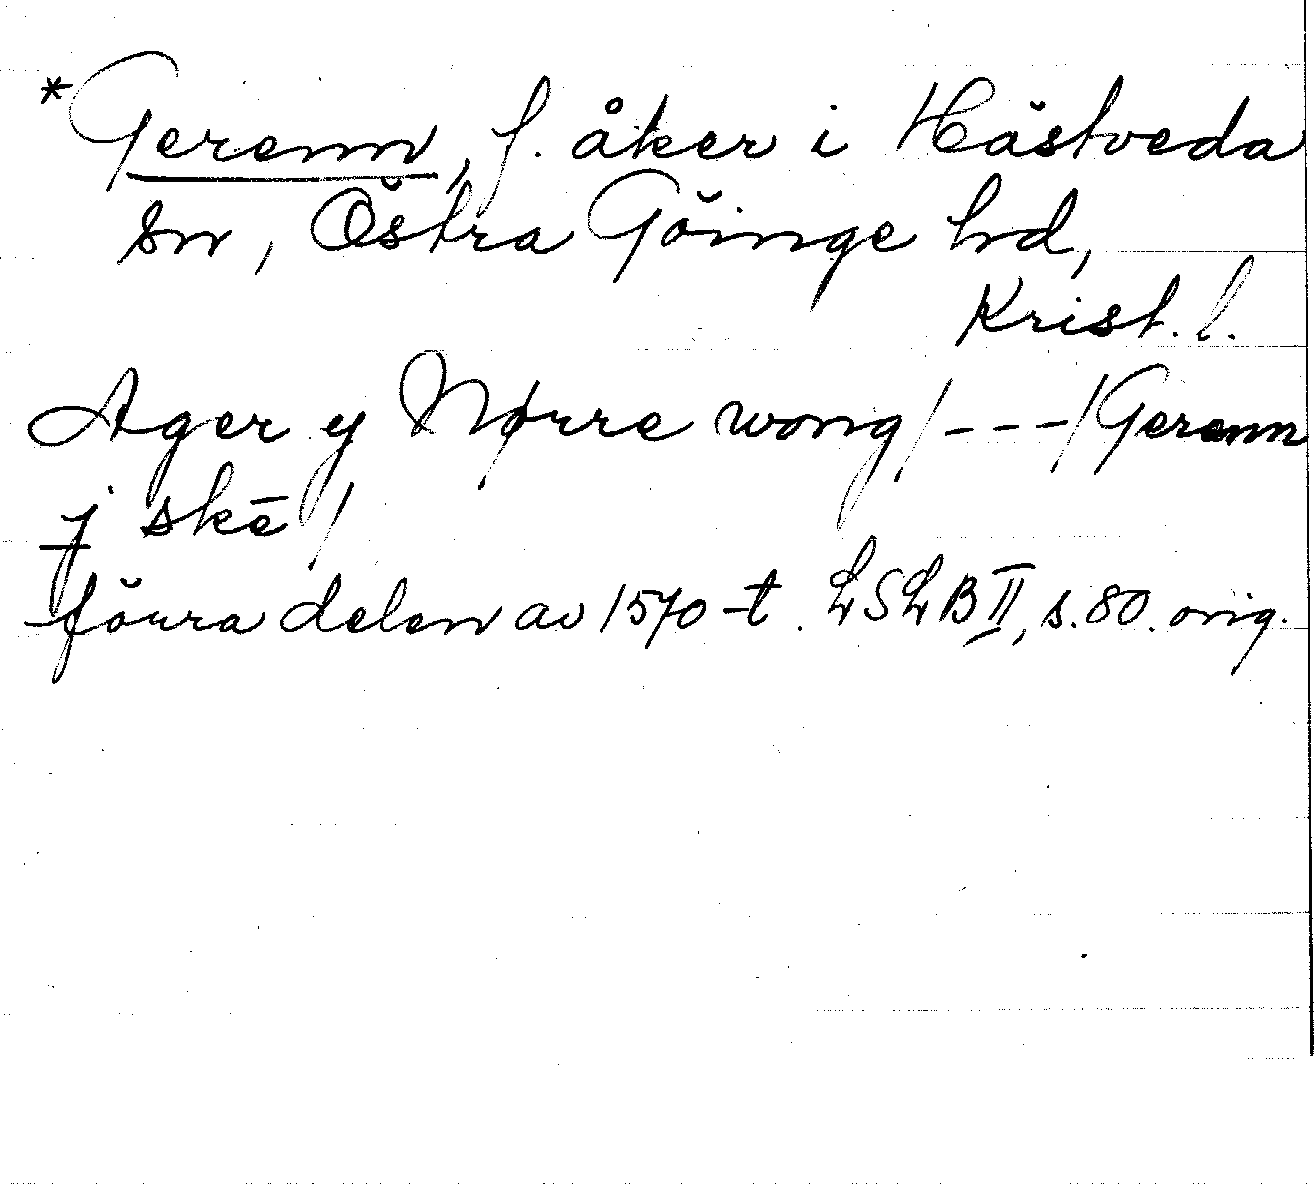 *Gerenn, f. åker i Hästveda
sn, Östra Göinge hd,
Krist. l.
Ager y Nørre wong /---/ Gerenn
j skē /
förra delen av 1570-t. LSLB II, s. 80. orig.